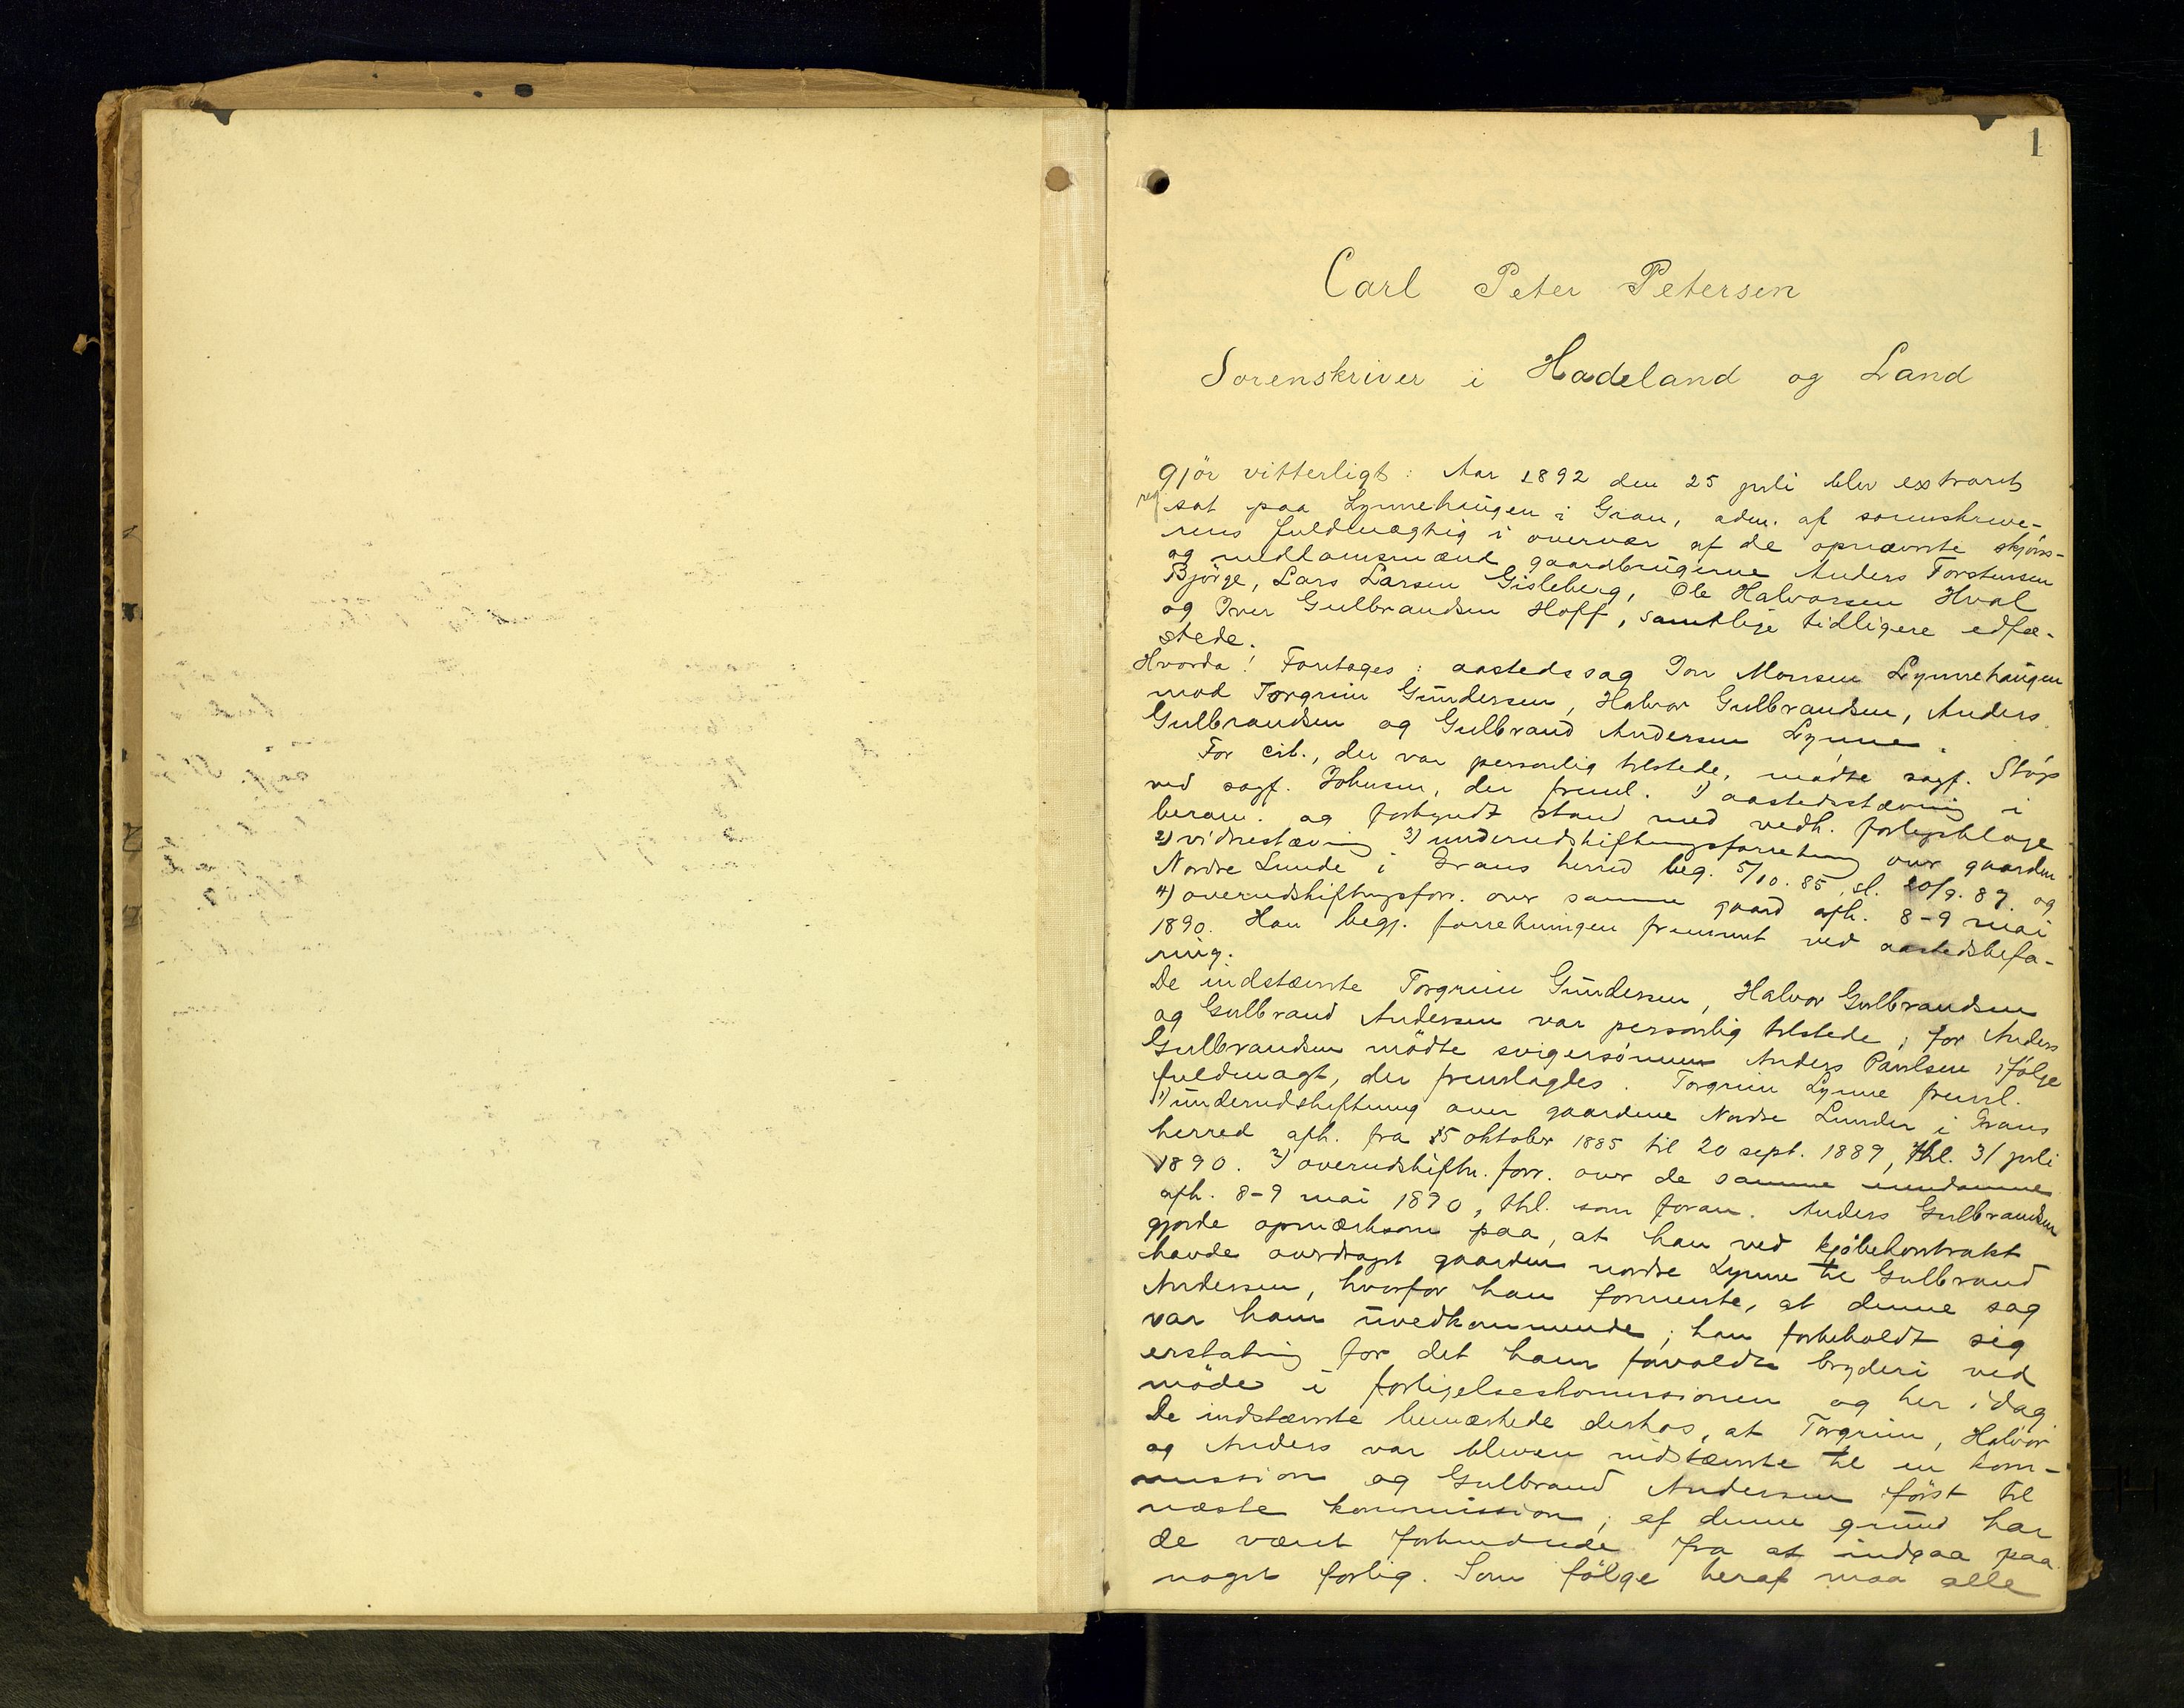 1
Carl Peter Petersen
Sorenskriver i Hadeland og Land
gjör vitterligt: Aar 1892 den 25 juli blev extraret
sat paa Lynnehaugen i Gran, adm. af sorenskrive-
rens fuldmægtig i overvær af de opnævnte skjöns-
og meddomsmænd gaardbrugerne Anders Torstensen
Bjørge, Lars Larsen Gisleberg, Ole Halvorsen Hval
og Iver Gulbrandsen Hoff, samtlige tidligere edfæ-
stede.
Hvorda! Foretages: aastedssag Jon Monsen Lynnehaugen
mod Torgrim Gundersen, Halvor Gulbrandsen, Anders
Gulbrandsen og Gulbrand Andersen Lynne.
For cit., der var personlig tilstede, mødte sagf. Stöp
ved sagf. Johnsen, der freml. 1) aastedsstævning i
beram. og forkyndt stand med vedh. forligsklage
2) vidnestævning 3) underudskiftningsforretning over gaarden
Nordre Lunde i Grans herred beg. 5/10. 85, sl. 20/9. 89. og
4) overudskiftningsforr. over samme gaard afh. 8-9 mai
1890. Han begj. forretningen fremmet ved aastedsbefa-
ring.
De indstævnte Torgrim Gundersen, Halvor Gulbrandsen
og Gulbrand Andersen var personlig tilstede; for Anders
Gulbrandsen mödte svigersönnen Anders Paulsen ifölge
fuldmagt, der fremlagdes. Torgrim Lynne freml.
1) underudskiftning over gaardene Nordre Lunder i Grans
herred afh. fra 5 oktober 1885 til 20 sept. 1889, thl. 31 juli
1890. 2) overudskiftn. forr. over de samme eiendomme
afh. 8-9 mai 1890, thl. som foran. Anders Gulbrandsen
gjorde opmærksom paa, at han ved kjöbekontrakt
havde overdraget gaarden nordre Lynne til Gulbrand
Andersen, hvorfor han formente, at denne sag
var ham uvedkommende; han forbeholdt sig
erstatning for det ham forvoldte bryderi ved
möde i forligelseskommissionen og her idag.
De indstævnte bemærkede derhos, at Torgrim, Halvor
og Anders var bleven indstævnte til en kom-
mission og Gulbrand Andersen först til
næste kommission; af denne grund har
de været forhindrede fra at indgaa paa
noget forlig. Som fölge heraf maa alle